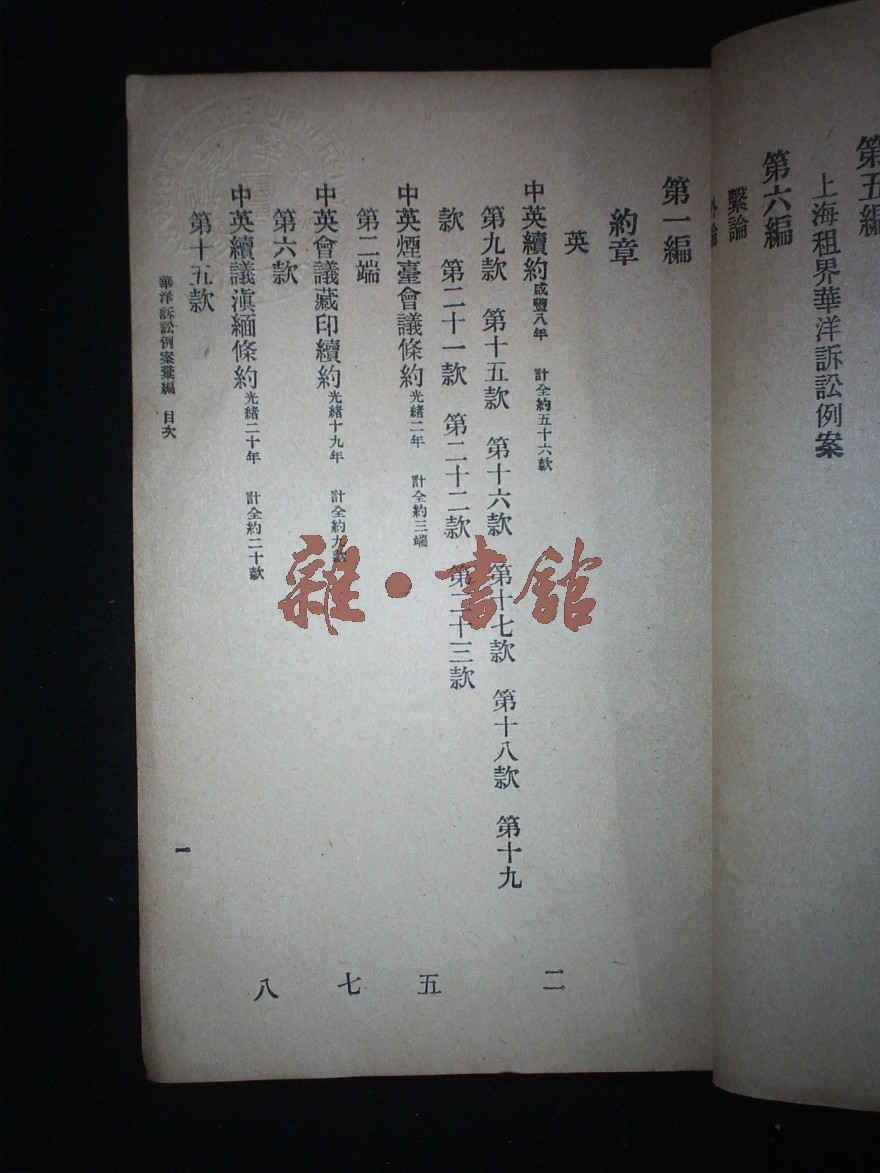 第五編
上海租界華洋訴訟例案
第六編
繫論
外論
第一編
約章
英
中英續約咸豐八年 計全約五十六款
第九款 第十五款 第十六款 第十七款 第十八款 第十九
款 第二十一款 第二十二款 第二十三款
中英煙臺會議條約光緒二年 計全約三端
第二端
中英會議藏印續約光緒十九年 計全約九款
第六款
中英續議滇緬條約光緒二十年 計全約二十款
第十五款
華洋訴訟例案彙編 目次
一
二
五
七
八
雜·書館